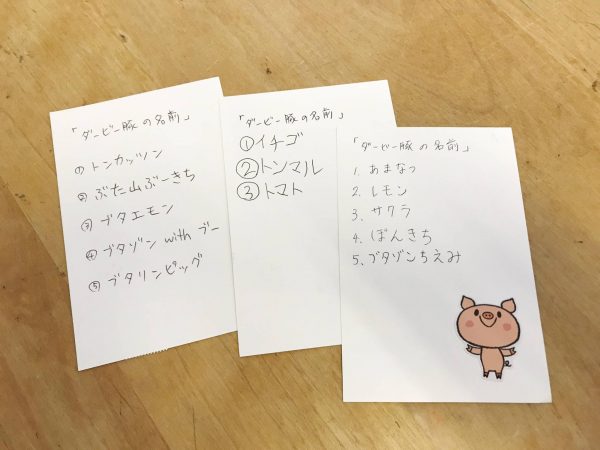 「ダービー豚の名前」
① トンカッツン
② ぶた山ぶーきち
③ ブタエモン
④ ブタゾン with ブー
⑤ ブタリンピッグ
「ダービー豚の名前」
① イチゴ
② トンマル
③ トマト
「ダービー豚の名前」
1. あまなつ
2. レモン
3. サクラ
4. ぽんきち
5. ブタゾンちえみ